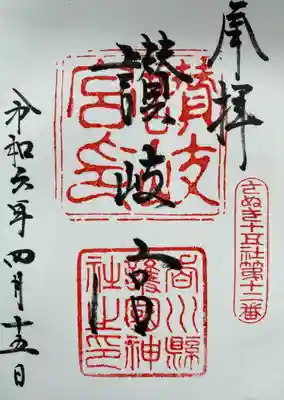 奉拝
さぬき十五社第十二番
讃岐宮
讃岐
宮印
香川縣
護國神
社之印
令和六年四月十五日